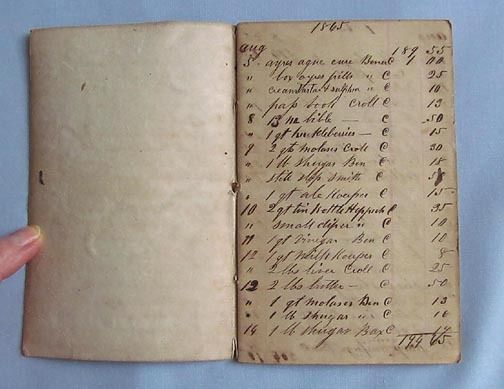 1865
Aug 189 55
5 ayres ague cure Ben C 1 00
" box ayres pills " C 25
" cream tartar & sulphur " C 10
" pass book Croll C 13
8 13 No bible — C 50
" 1 qt huckleberries — C 15
9 2 qts molases Croll C 30
" 1 lb shugar Ben C 18
" slop Smith C
" 1 qt ale Hooper C 15
10 2 qt tin kettle C 35
" small diper " C 10
11 1 qt vinegar Ben C 10
12 1 qt milk Hooper C 8
" 2 lbs liver Croll C 25
12 2 lbs butter — C 50
" 1 qt molases Ben C 13
" 1 lb shugar " C 16
14 1 lb shugar Ben C 17
194 65